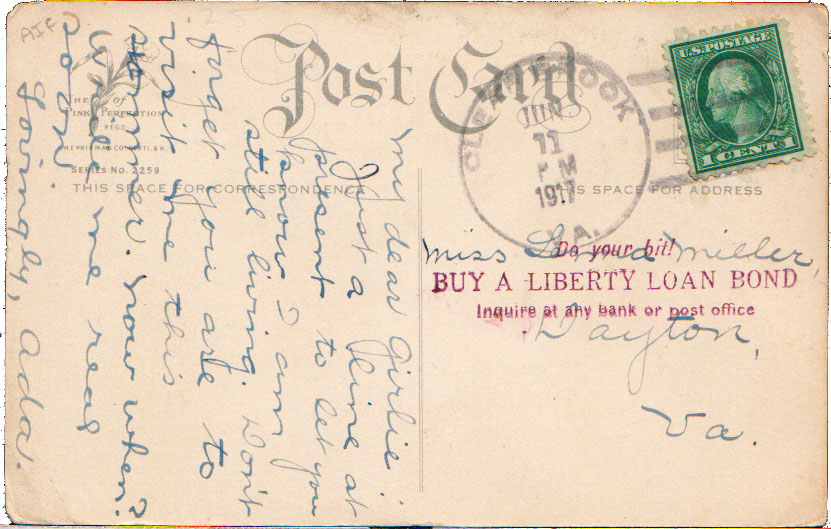 AIF
THE of
INK PERFECTION
REGD
THE FAIRMAN CO. CINTI. & N.Y.
SERIES No. 2259
Post Card
THIS SPACE FOR CORRESPONDENCE
THIS SPACE FOR ADDRESS
JUN
11
PM
1917
VA.
U.S. POSTAGE
1 CENT 1
My dear Girlie:
Just a line at
present to let you
know I am
still living. Don't
forget you are to
visit me this
summer. Now when?
Write me real
soon
Lovingly, Ada.
Miss Miller,
Dayton,
Va.
Do your bit!
BUY A LIBERTY LOAN BOND
Inquire at any bank or post office